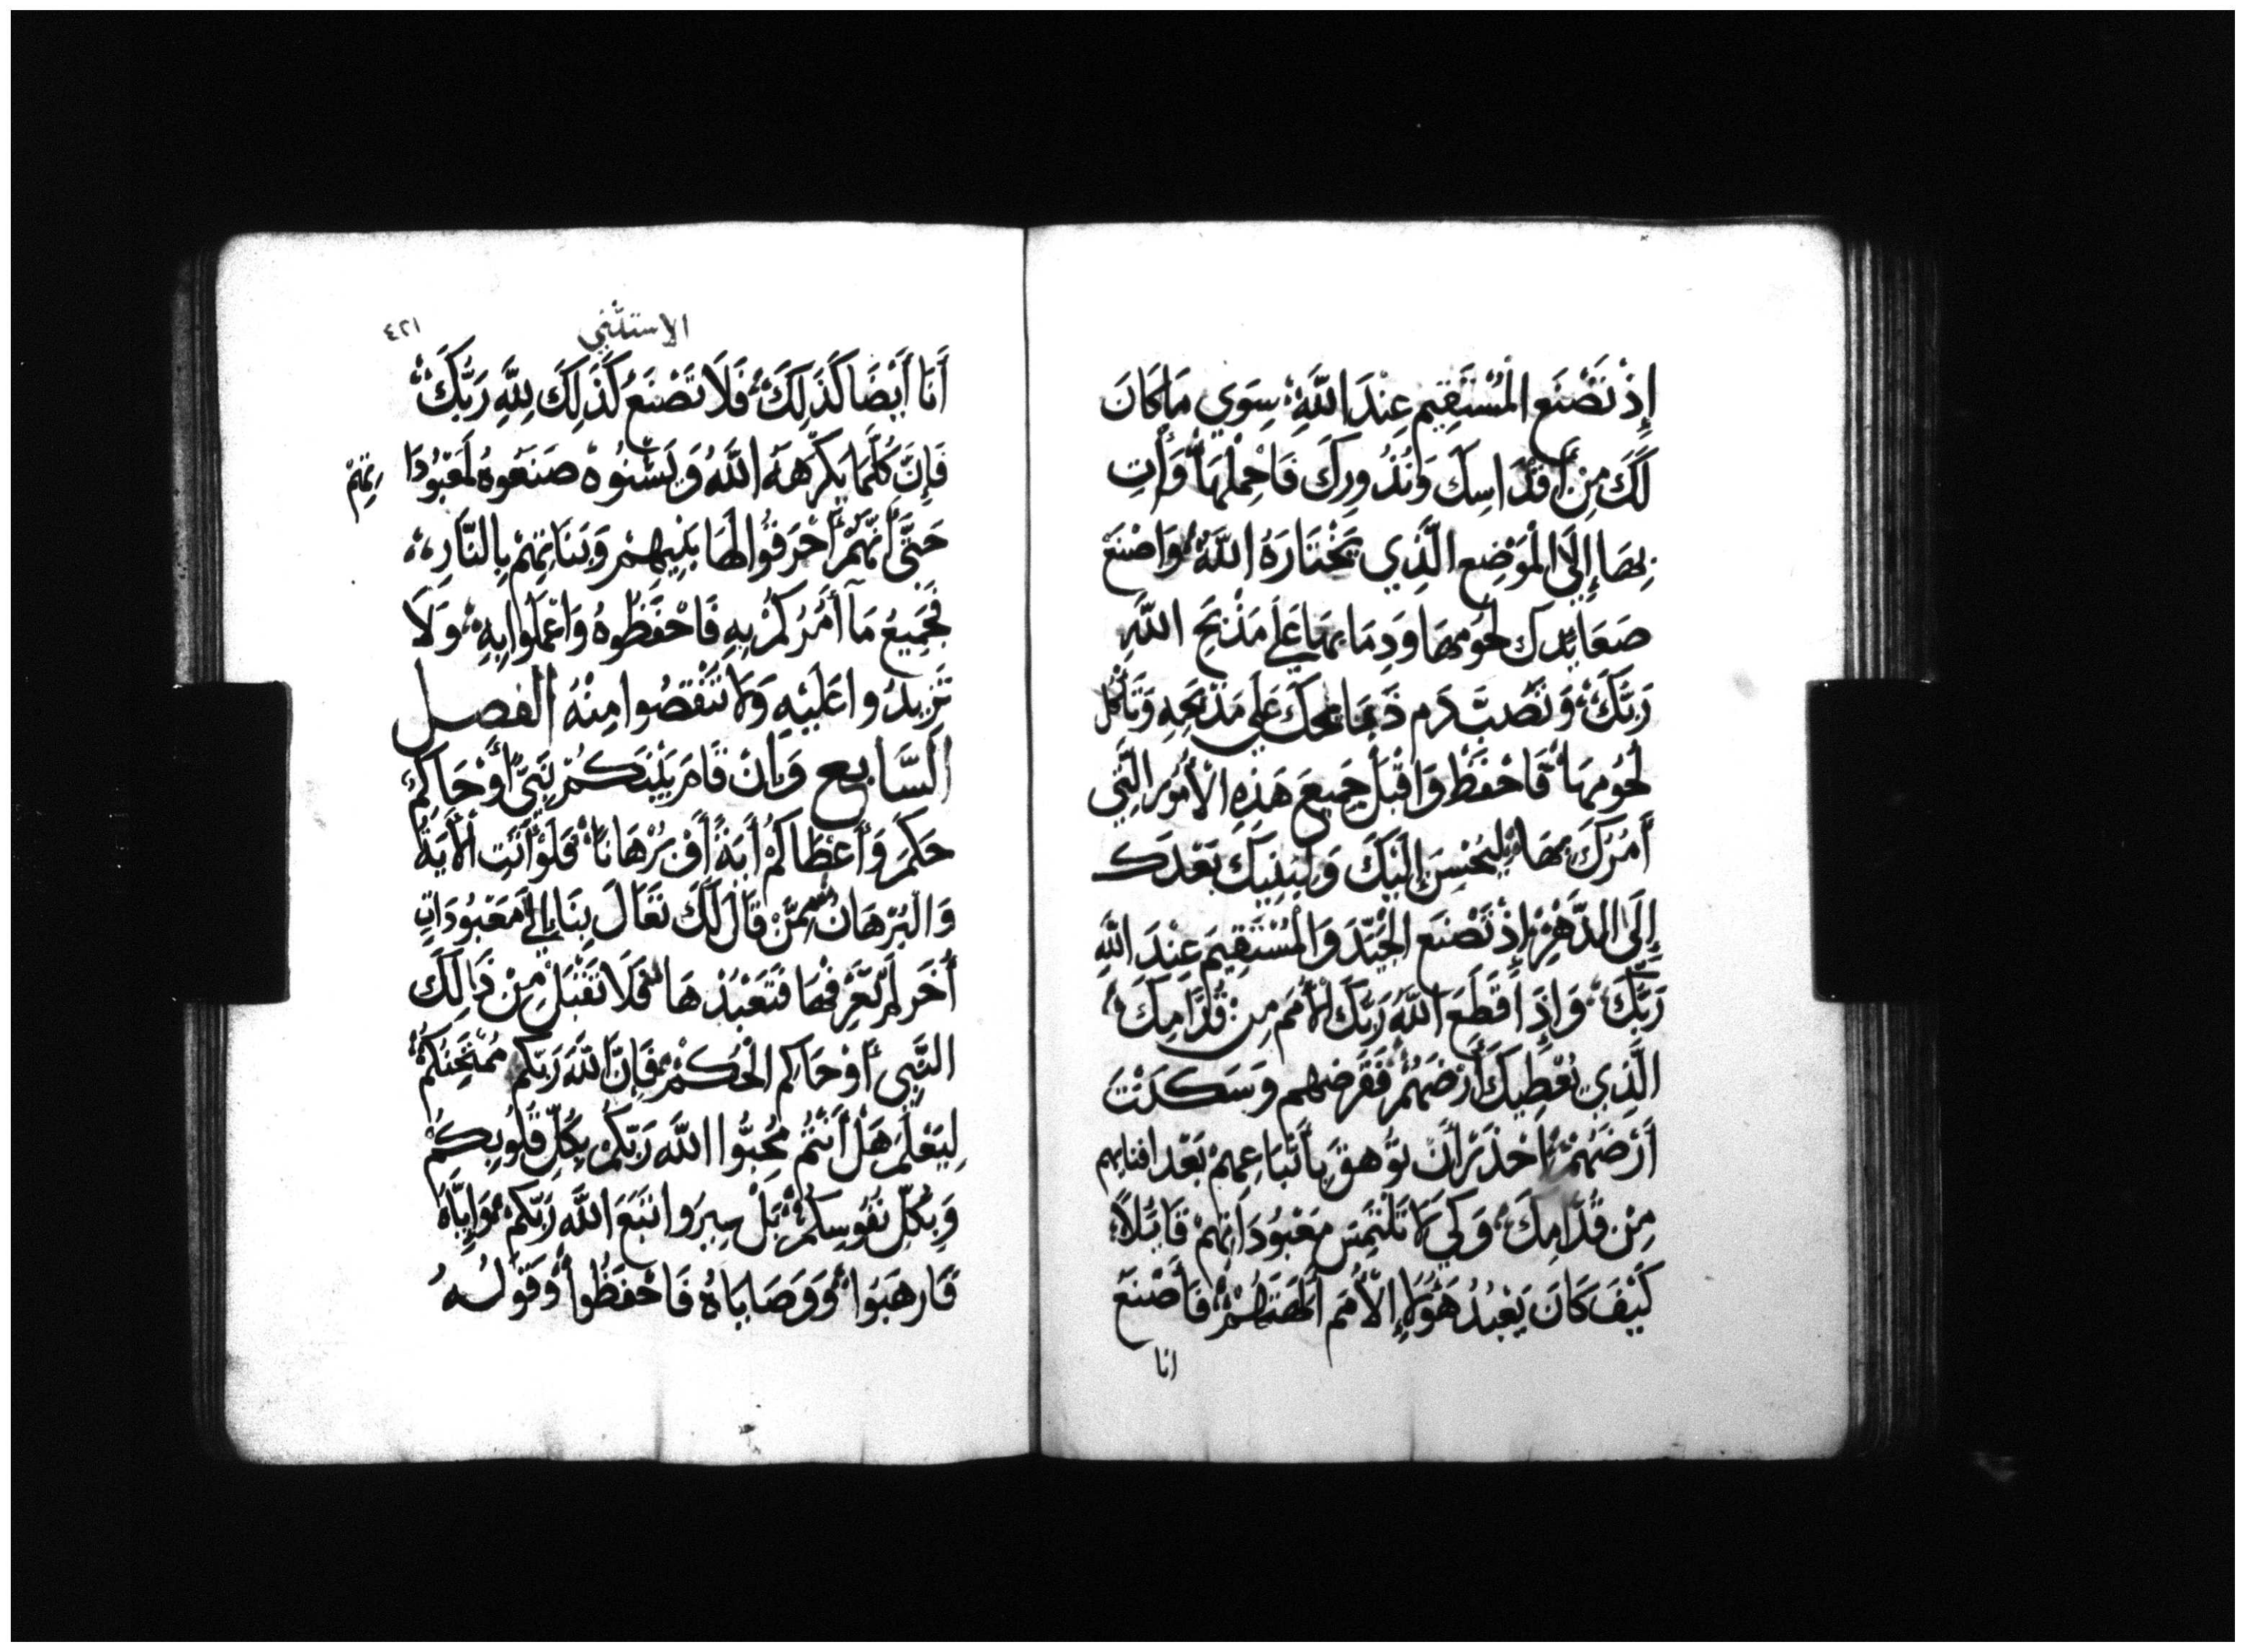 إِذْ تَصْنَع الْمُسْتَقِيم عِنْدَ اللَّهِ سِوَي مَا كَانَ
لَكَ مِنْ أَقْدَاسِكَ وَنُذُورِكَ فَاحْمِلْهَا وَأْتِ
بِهَا إِلَى الْمَوْضِعِ الَّذِي يَخْتَارَهُ اللَّهُ وَاصْنَعْ
صَعَايِدِك لُحُومِهَا وَدِمَايِهَا عَلَى مَذْبَحِ اللَّهِ
رَبِّكَ وَتَصُبَّ دَم ذَبَايِحِكَ عَلَي مَذْبَحِهِ وَتَأْكُل
لُحُومِهَا فَاحْفَظْ وَاقْبَلْ جَمِيعَ هَذِهِ الْأُمُورِ الَّتِي
آمُرُكَ بِهَا لِيُحْسِنَ إِلَيْكَ وَلِبَنِيكَ بَعْدَك
إِلَى الدَّهْرِ إِذْ تَصْنَع الْجَيِّدَ وَالْمُسْتَقِيمَ عِنْدَ اللَّهِ
رَبِّكَ وَإِذَا قَطَعَ اللَّهُ رَبَّكَ الْأُمَم مِنْ قُدَّامِكَ
الَّذِي يُعْطِيكَ أَرْضَهُمْ فَقَرَضْهم وَسَكَنْتَ
أَرْضَهُمْ احْذَرْ أَنْ تُوهَقَ بِأَتْبَاعِهِمْ بَعْد افنايهم
مِنْ قُدَّامِكَ وَكَي لَا تَلْتَمِسَ مَعْبُودَاتِهِمْ قَايِلًا
كَيْفَ كَانَ يَعْبُدُ هَؤُلَاءِ الْأُمَم آلِهَتِهِمْ فَأَصْنَعَ
انا
الاستثني
٤٢١
أَنَا أَيْضَا كَذَلِكَ فَلَا تَصْنَعْ كَذَلِكَ لِلَّهِ رَبِّكَ
فَإِنَّ كُلَّمَا يَكْرَهَهُ اللَّهُ وَيَشْنُوهْ صَنَعُوهُ لِمَعْبُودَا
تِهِمْ
حَتَّى أَنَّهُمْ أَحْرَقُوا لَهَا بَنِيهِمْ وَبَنَاتِهِمْ بِالنَّارِ
فَجَمِيعُ مَا آمُرُكُمْ بِهِ فَاحْفَظُوهُ وَاعْمَلُوا بِهِ وَلَا
تَزِيدُوا عَلَيْهِ وَلَا تَنْقُصُوا مِنْهُ الفصل
السَّابِع وَإِنْ قَامَ بَيْنَكُمْ نَبِيًّ أَوْ حَاكِمُ
حَكَمَ وَأَعْطَاكُمْ آيَةً أَوْ بُرْهَانًا فَلَوْ أَتَتِ الْآيَةُ
وَالْبُرْهَانُ مِمَّنْ قَالَ لَكَ تَعَالَ بِنَا إِلَى مَعْبُودَاتٍ
أُخَر لَمْ تَعْرِفْهَا فَتَعْبُدْهَا فَلَا تَقْبَلْ مِنْ ذَالِكَ
النَّبِي أَوْ حَاكِم الْحُكْمْ فَإِنَّ اللَّهَ رَبَّكُم مُمْتَحِنَكُمْ
لِيَعْلَمَ هَلْ أَنْتُمْ مُحِبُّوا اللَّهَ رَبِّكُمْ بِكُلِّ قُلُوبِكُمْ
وَبِكُلِّ نُفُوسِكُمْ بَلْ سِيرُوا تَبَعَ اللَّهِ رَبِّكُمْ وَإِيَّاهُ
فَارهَبُوا وَوَصَايَاهُ فَاحْفَظُوا وَقَوْلُهُ